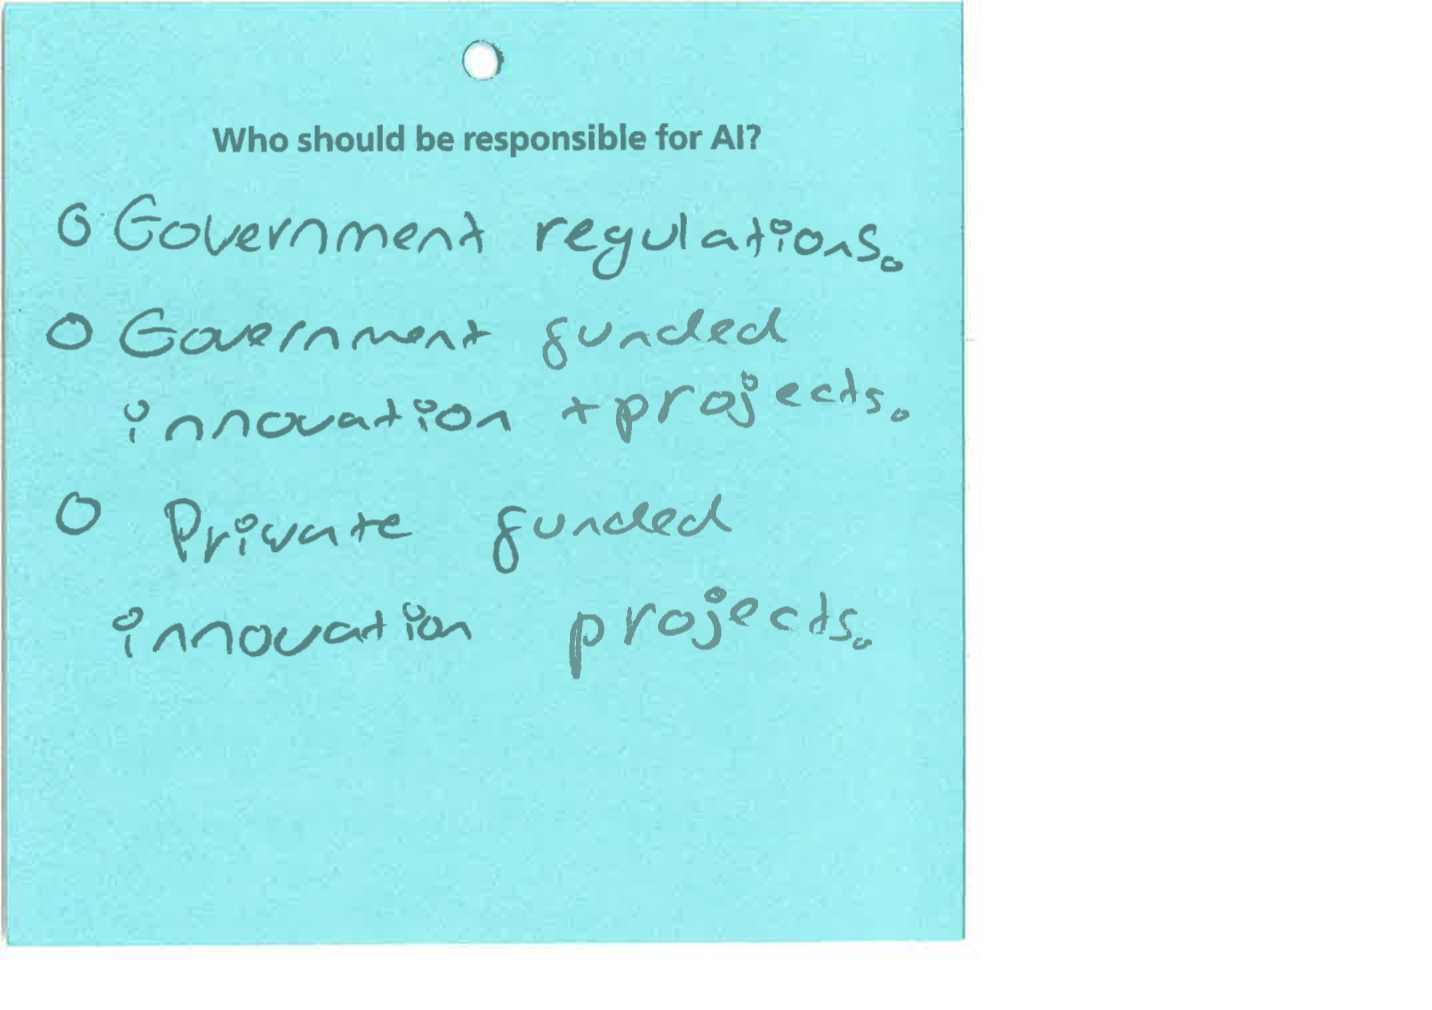 Who should be responsible for AI?
o Government regulations.
o Government funded
innovation + projects.
o Private funded
innovation projects.